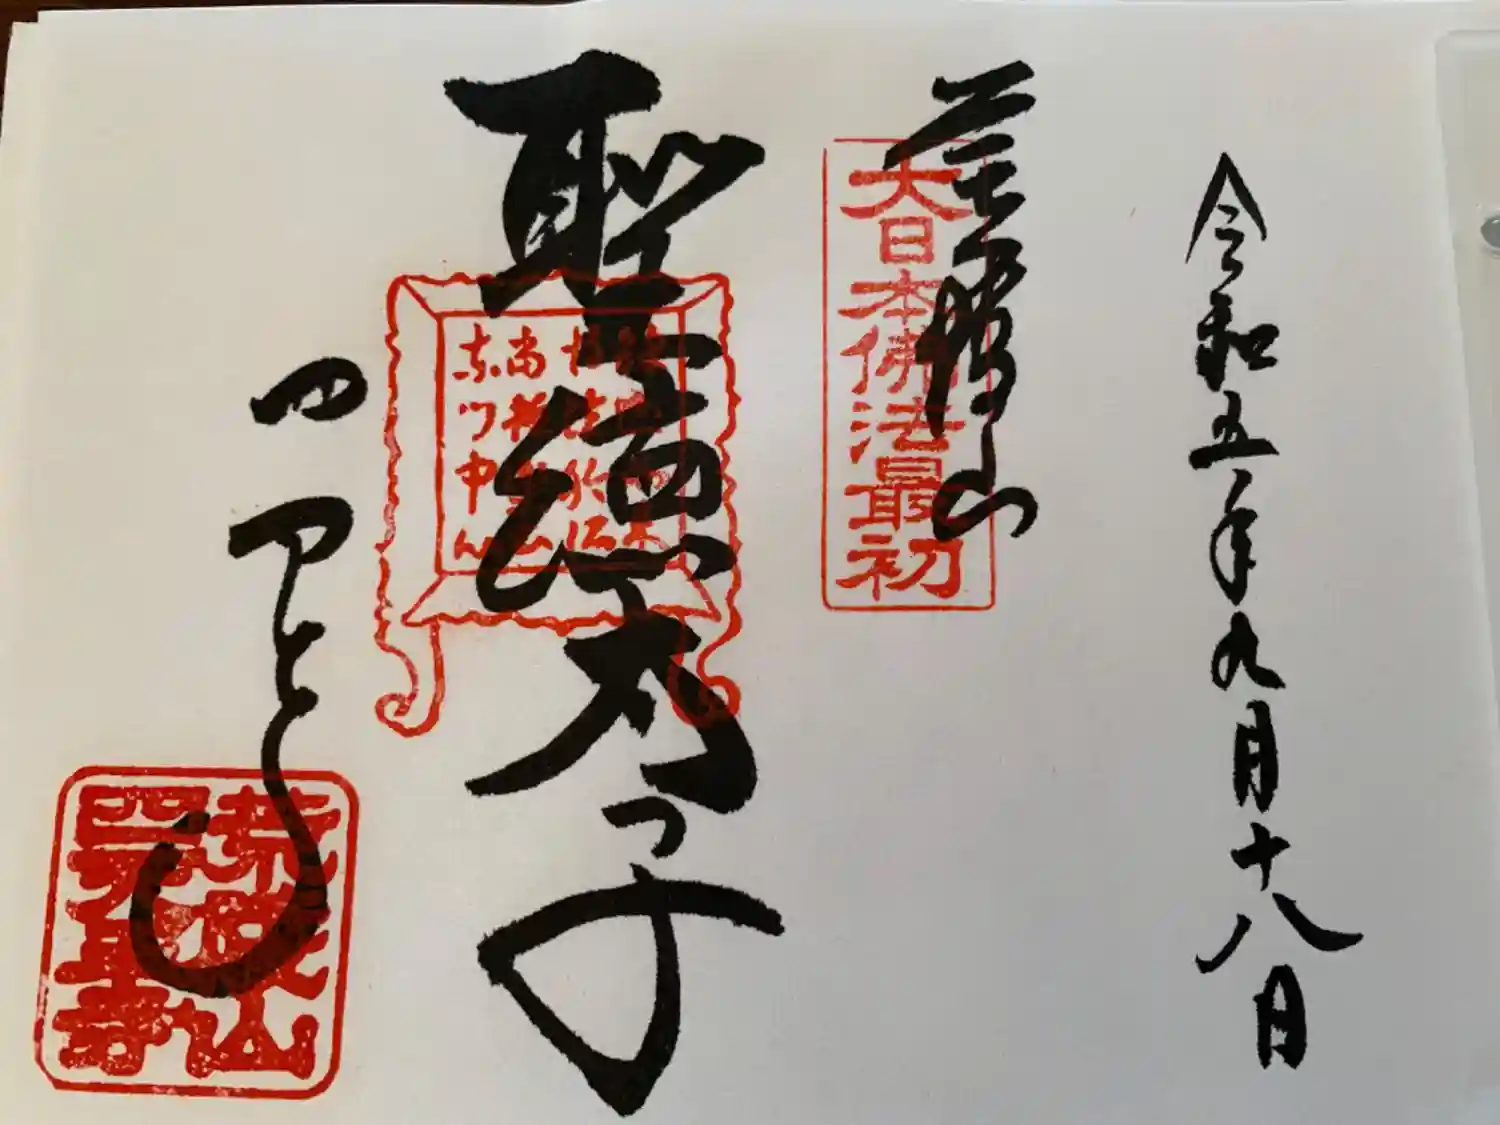 令和五年九月十八日
荒陵山
大日本佛法最初
聖徳太子
東門中心
四天王寺
荒陵山
四天王寺